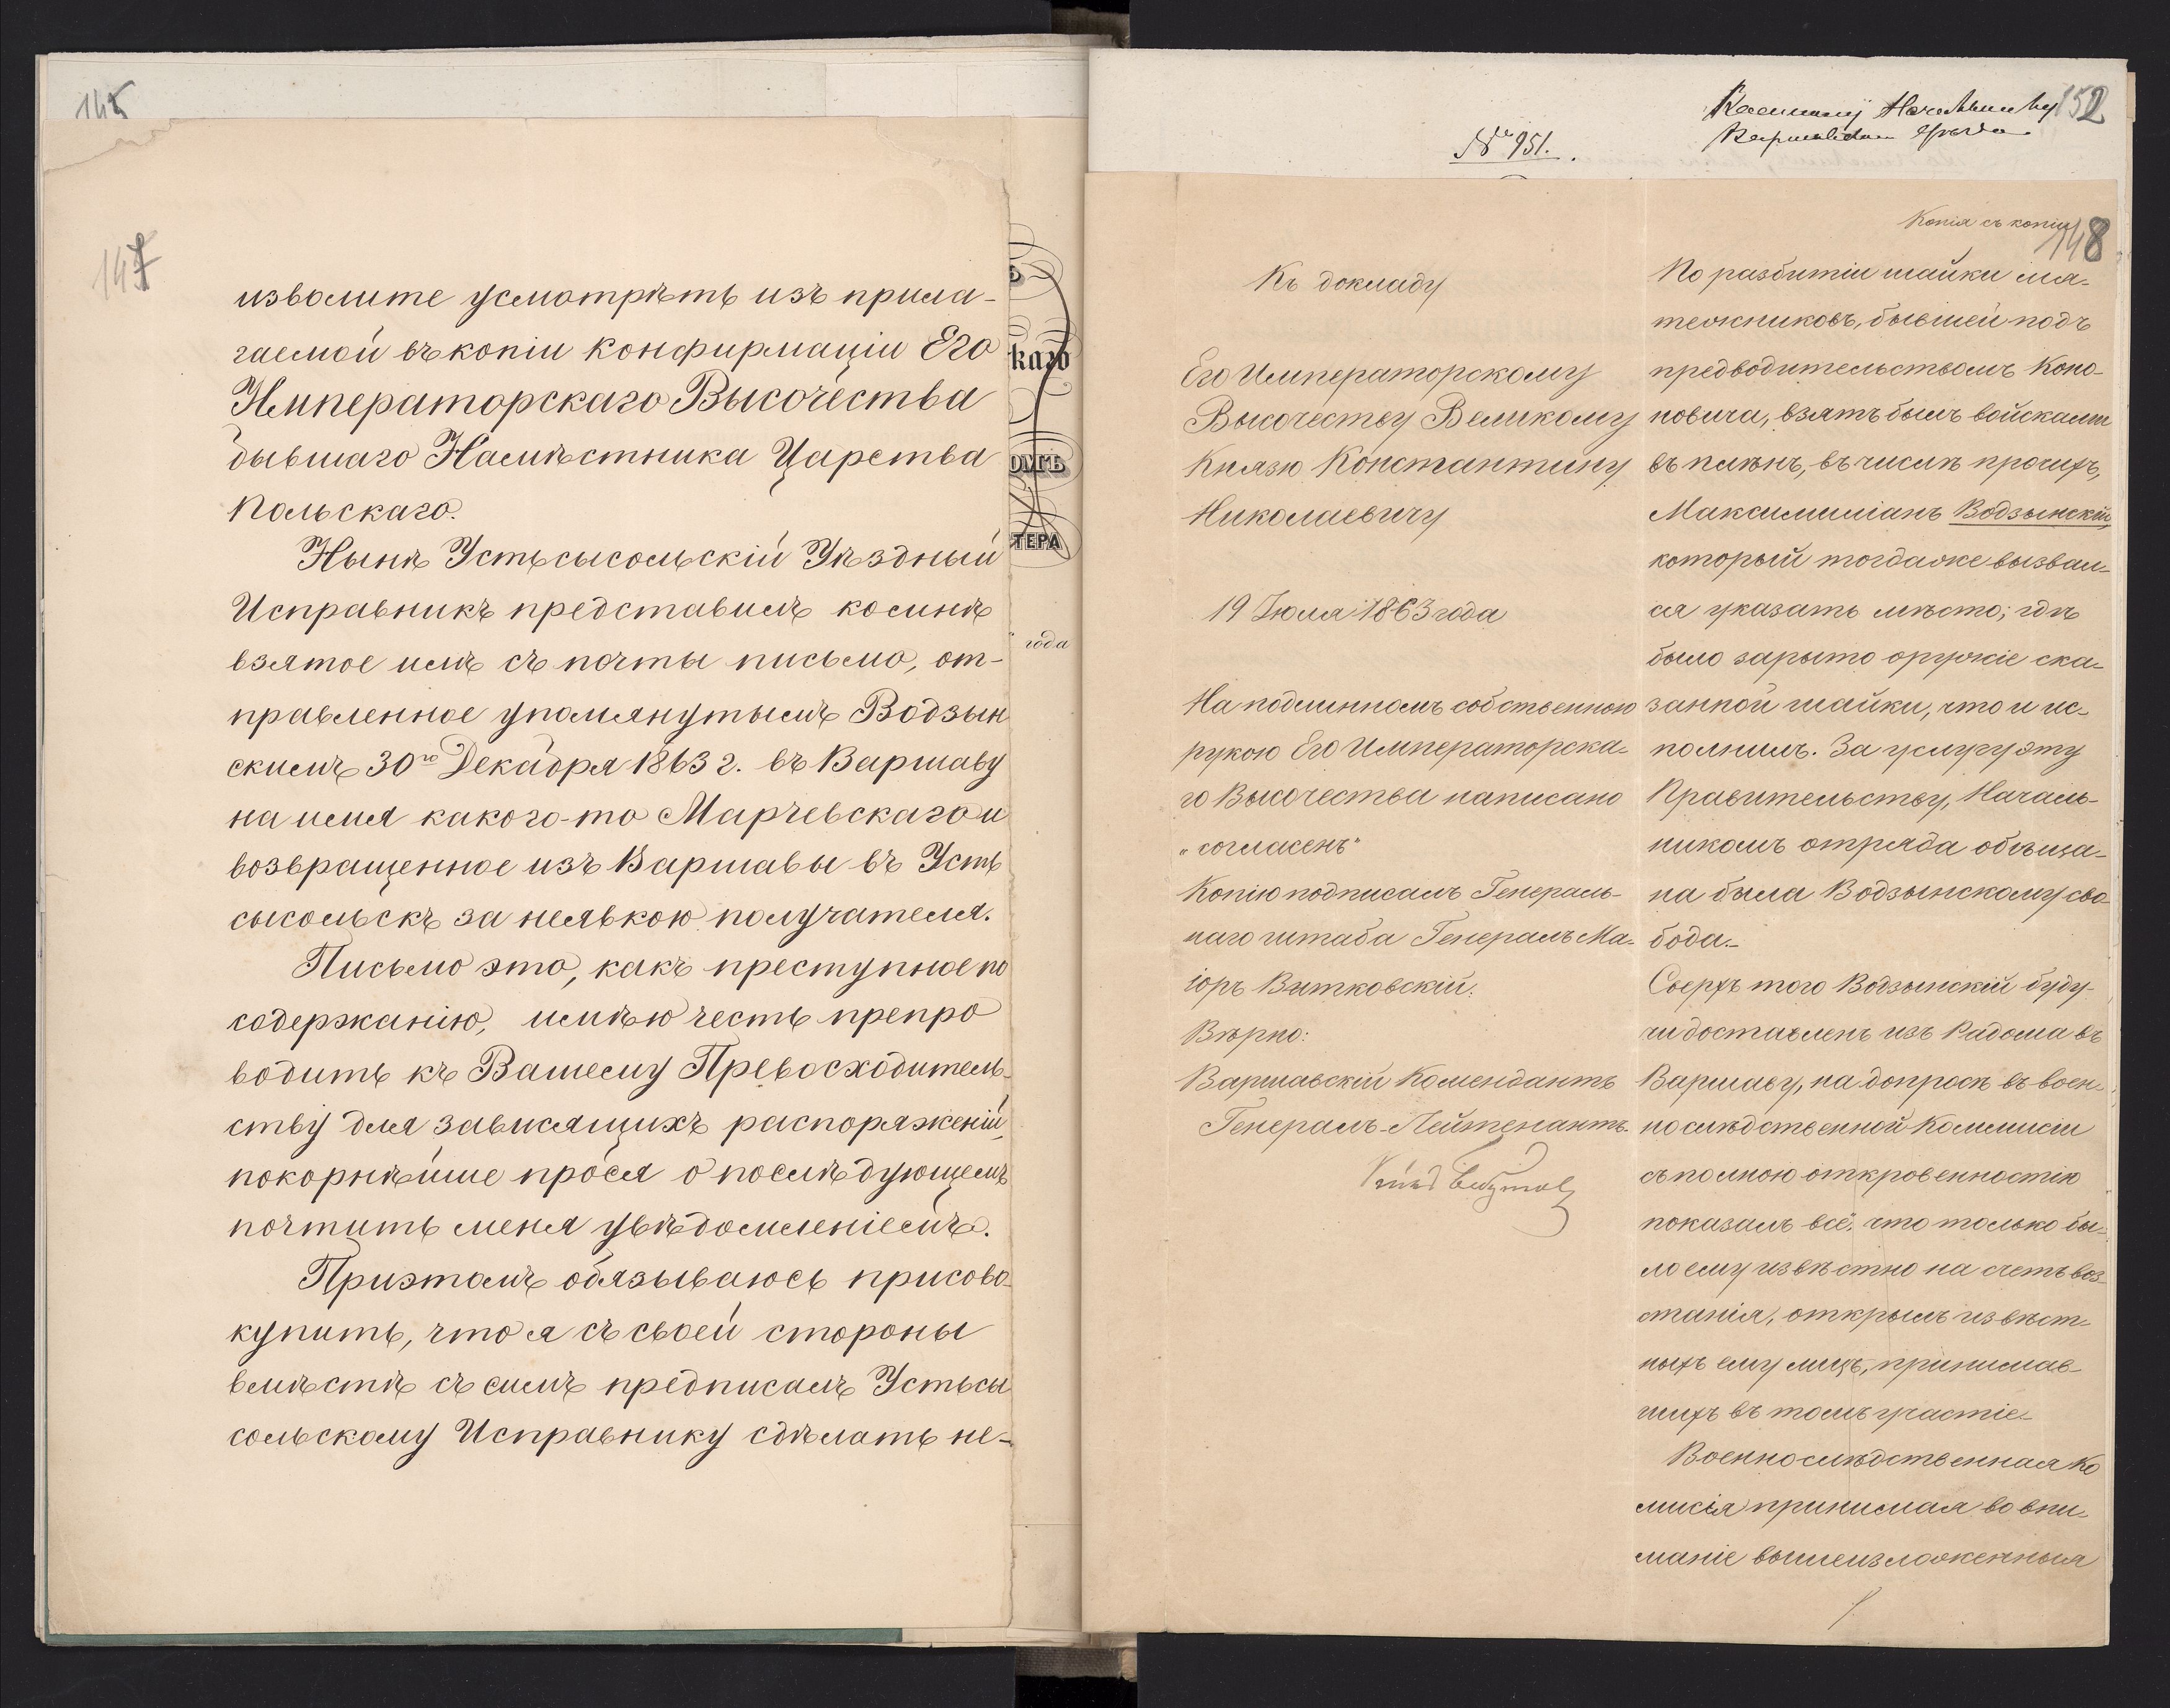 145
147
изволите усмотрѣть изъ прила-
гаемой въ копіи конфирмаціи Его
Императорскаго Высочества
бывшаго Намѣстника Царства
Польскаго.
Нынѣ Устьсысольскій Уѣздный
Исправникъ представилъ ко мнѣ
взятое имъ съ почты письмо, от-
правленное упомянутымъ Водзын
скимъ 30го Декабря 1863 г. въ Варшаву
на имя какого-то Марчевскаго и
возвращенное изъ Варшавы въ Усть
сысольскъ за неявкою получателя.
Письмо это, какъ преступное по
содержанію, имѣю честь препро
водить къ Вашему Превосходитель-
ству для зависящихъ распоряженій,
покорнѣйше прося о послѣдующемъ
почтить меня увѣдомленіемъ.
Приэтомъ обязываюсь присово-
купить, что я съ своей стороны
вмѣстѣ съ симъ предписалъ Устьсы
сольскому Исправнику сдѣлать не-
каго
омъ
ТЕРА
года
152
№ 951.
Копія съ копіи
148
Къ докладу
Его Императорскому
Высочеству Великому
Князю Константину
Николаевичу
19 Іюля 1863 года
На подлинномъ собственною
рукою Его Императорска-
го Высочества написано
„согласенъ"
Копію подписалъ Генераль-
наго штаба Генералъ Ма-
іоръ Витковскій.
Вѣрно:
Варшавскій Комендантъ
Генералъ-Лейтенантъ
По разбитіи шайки мя-
тежниковъ, бывшей подъ
предводительствомъ Коно-
новича, взятъ былъ войсками
въ плѣнъ, въ числѣ прочихъ,
Максимиліанъ Водзынскій,
который тогда же вызвал-
ся указать мѣсто, гдѣ
было зарыто оружіе ска-
занной шайки, что и ис-
полнилъ. За услугу эту
Правительству, Началь-
никомъ отряда обѣща-
на была Водзынскому сво-
бода.
Сверхъ того Водзынскій буду-
чи доставленъ изъ Радома въ
Варшаву, на допросѣ въ воен-
но слѣдственной Коммисіи
съ полною откровенностію
показалъ всё, что только бы-
ло ему извѣстно на счетъ воз-
станія, открылъ извѣст-
ныхъ ему лицъ, принимав-
шихъ въ томъ участіе
Военно слѣдственная Ко
мисія принимая во вни-
маніе вышеизложенныя